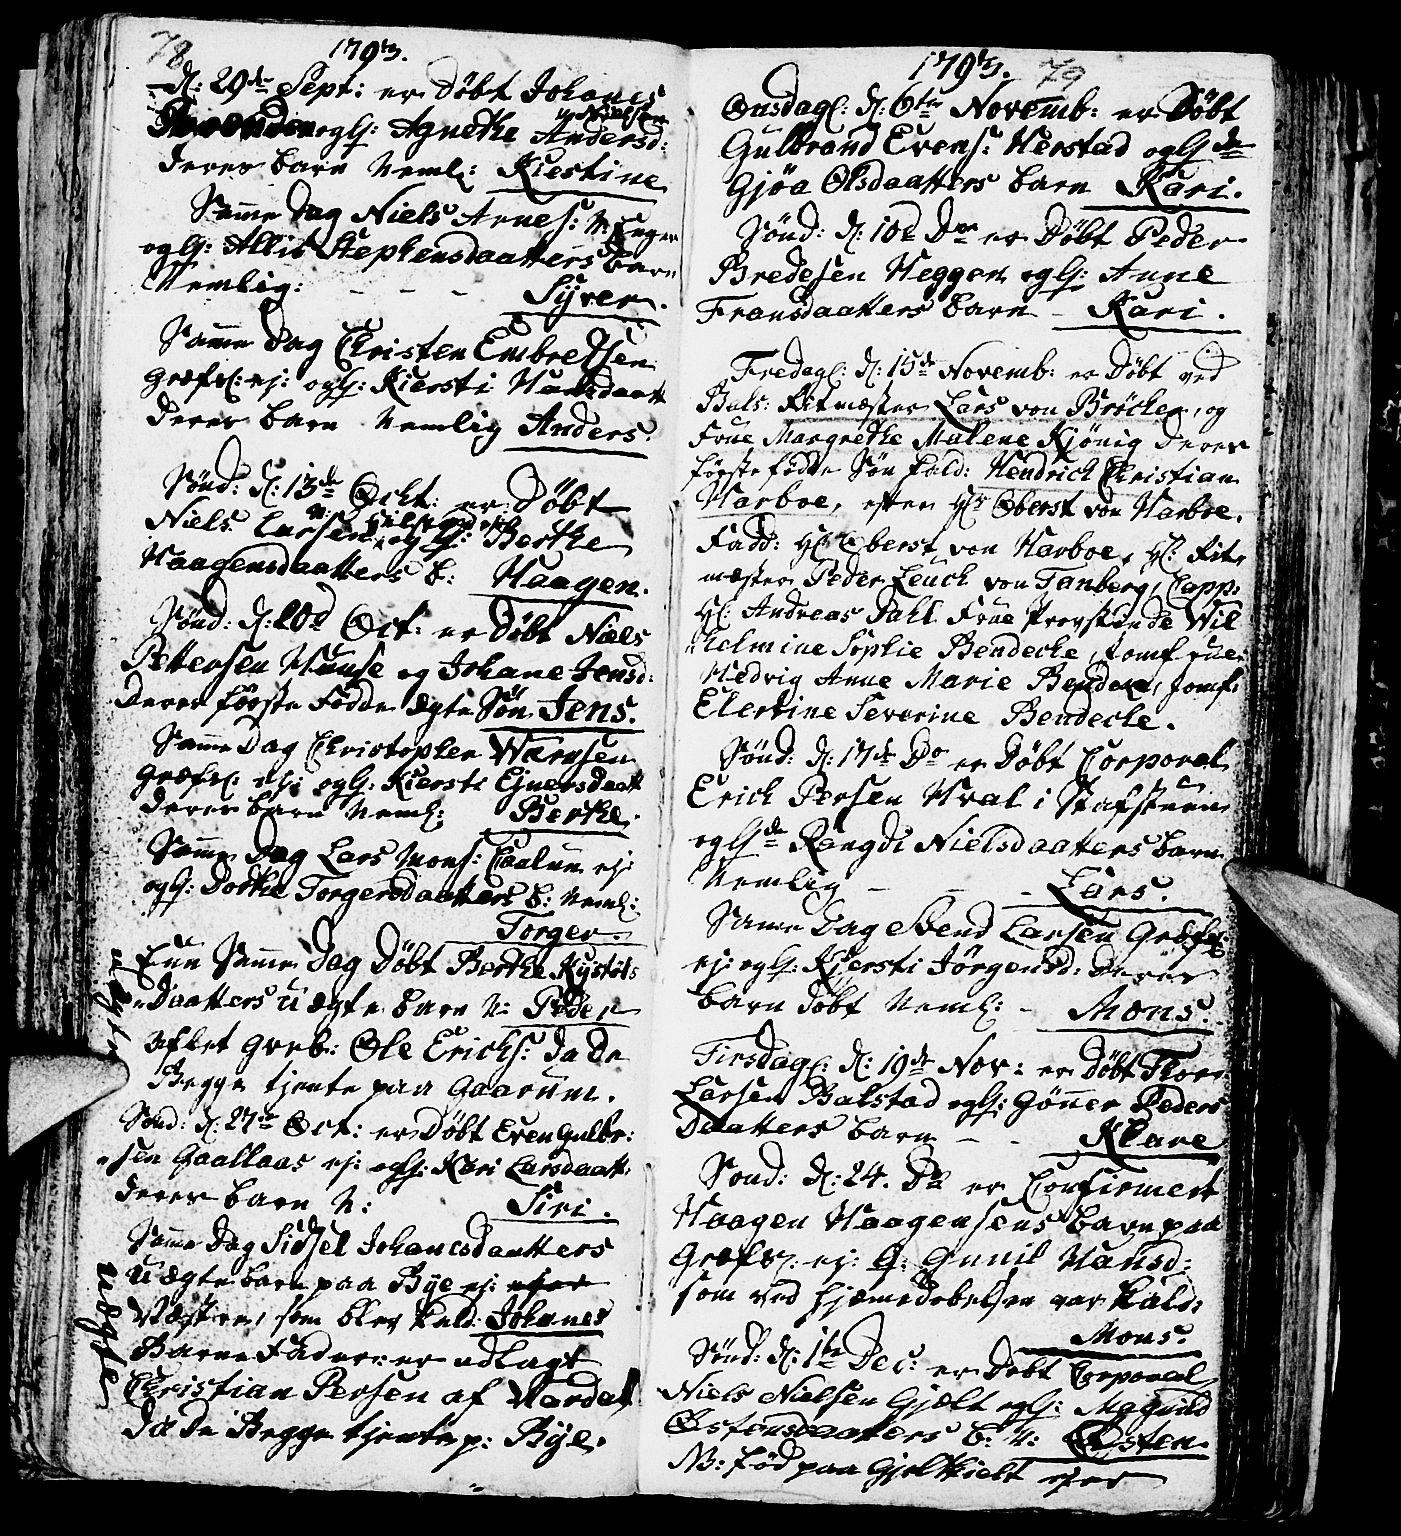 78
1793.
D: 29de Sept: er Døbt Johanes
Nielsen
oglh: Agnethe Andersd:
deres barn Neml: Kiestine
Samme Dag Niels Arnes:
oglh: Allis Stephensdaatters barn
Nemlig: - - - Syver.
Samme Dag Christen Embretsen
Græfs: ej: oglh: Kiersti Hansdaatt
deres barn Nemlig Anders.
Sønd: d: 13de Octt: er Døbt
Niels Larsen oglh: Berthe
Haagensdaatters b: Haagen.
Sønd: d: 20d Oct: er Døbt Niels
Pettersen og Johane Jensd:
deres første Fødde ægte Søn Jens.
Samme Dag Christopher
Græfs: ej: oglh: Kiersti Ejnersdaatt
deres barn Neml: Berthe.
Samme Dag Lars Mons: ej:
oglh: Dorthe Torgersdaatters b: Neml:
Torger.
Enn Samme Dag Døbt Berthe
Daatters uægte barn N: Peder
uægte
avlet Ole Ericks: da de
Begge tjente paa Gaarum.
Sønd: d: 27de Oct: er Døbt Even Gulbr:
sen Gaallaas ej: oglh: Kari Larsdaatt:
deres barn N: Siri.
Samme Dag Sidsel Johanesdaatters
uægte barn paa Bye ej:
uægte
som blev kald: Johanes
Barne Fader: er udlagt
Christian Persen af Vardal
da de Begge tjente p: Bye.
1793. 79
Onsdag: d: 6te Novemb: er Døbt
Gulbrand Evens: Herstad oglhde
Gjøa Olsdaatters barn Kari.
Sønd: d: 10d Do er Døbt Peder
Bredesen Heggen oglh: Anne
Fransdaatters barn - Kari.
Fredag: d: 15de Novemb: er Døbt ved
Bals: Ritmæster Lars von Bröcher, og
Frue Margrethe Malene Kjönig deres
første fødde Søn kald: Hendrich Christian
Harboe, efter Hr Oberst von Harboe.
Fadd: Hr Oberst von Harboe, Hr: Rit
mæster Peder Leuch von Tanberg, Capp:
Hr: Andreas Dahl Frue Provstinde Wil
helmine Sophie Bendeche, Jomfrue
Hedvig Anne Marie Bendeche, Jomf:
Elertine Severine Bendeche.
Sønd: d: 17de Do er Døbt Corporal
Erick Persen Hval i Stafstuen
oglhde Rangdi Nielsdaatters barn
Nemlig - - - Lars.
Samme Dag Svend Larsen Græfs:
ej: oglh: Kjersti Jörgensd: deres
barn døbt Neml: - Mons.
Tirsdag: d: 19de Nov: er Døbt Thor
Larsen Balstad oglh: Gönner Peders
Daatters barn - - Klare
Sønd: d: 24. Do er Confirmert
Haagen Haagensens barn paa
Græfs: ej: G: Gunil Hansd:
som ved Hjemedobelsen var kald:
Mons.
Sønd: d: 1te Dec: er Døbt Corporal
Niels Nielsen Gjølt oglh: Magnild
Østensdaatters b: N: Østen.
NB: fød paa